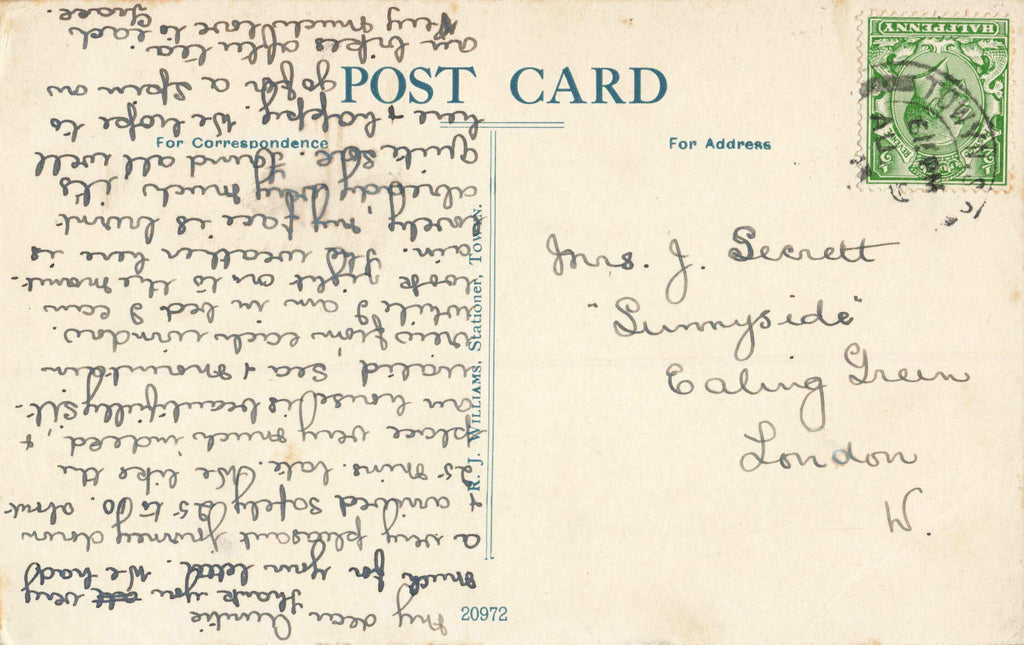 POST CARD
For Correspondence
For Address
HALFPENNY
TOWYN.S.
Mrs. J. Secrett
"Sunnyside"
Ealing Green
London
W.
R. J. WILLIAMS, Stationer, TOWYN.
20972
My dear Auntie
Thank you very
much for your letter. We had
a very pleasant journey down
& arrived safely 25 to 60. about
25 mins. late. We like the
place very much indeed, &
our house is beautifully sit-
uated Sea & Mountain
view from each window.
while I am in bed I can
look right on to the mount-
ain. The weather here is
lovely, my face is burnt
already, very much, it's
quite sore. Found all well
here & happy. We hope to
go for a spin on
our bikes after tea.
Very much love to each
Grace.